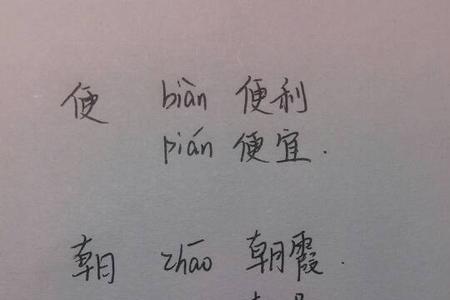 便 biàn 便利
pián 便宜.
朝 zhāo 朝霞.